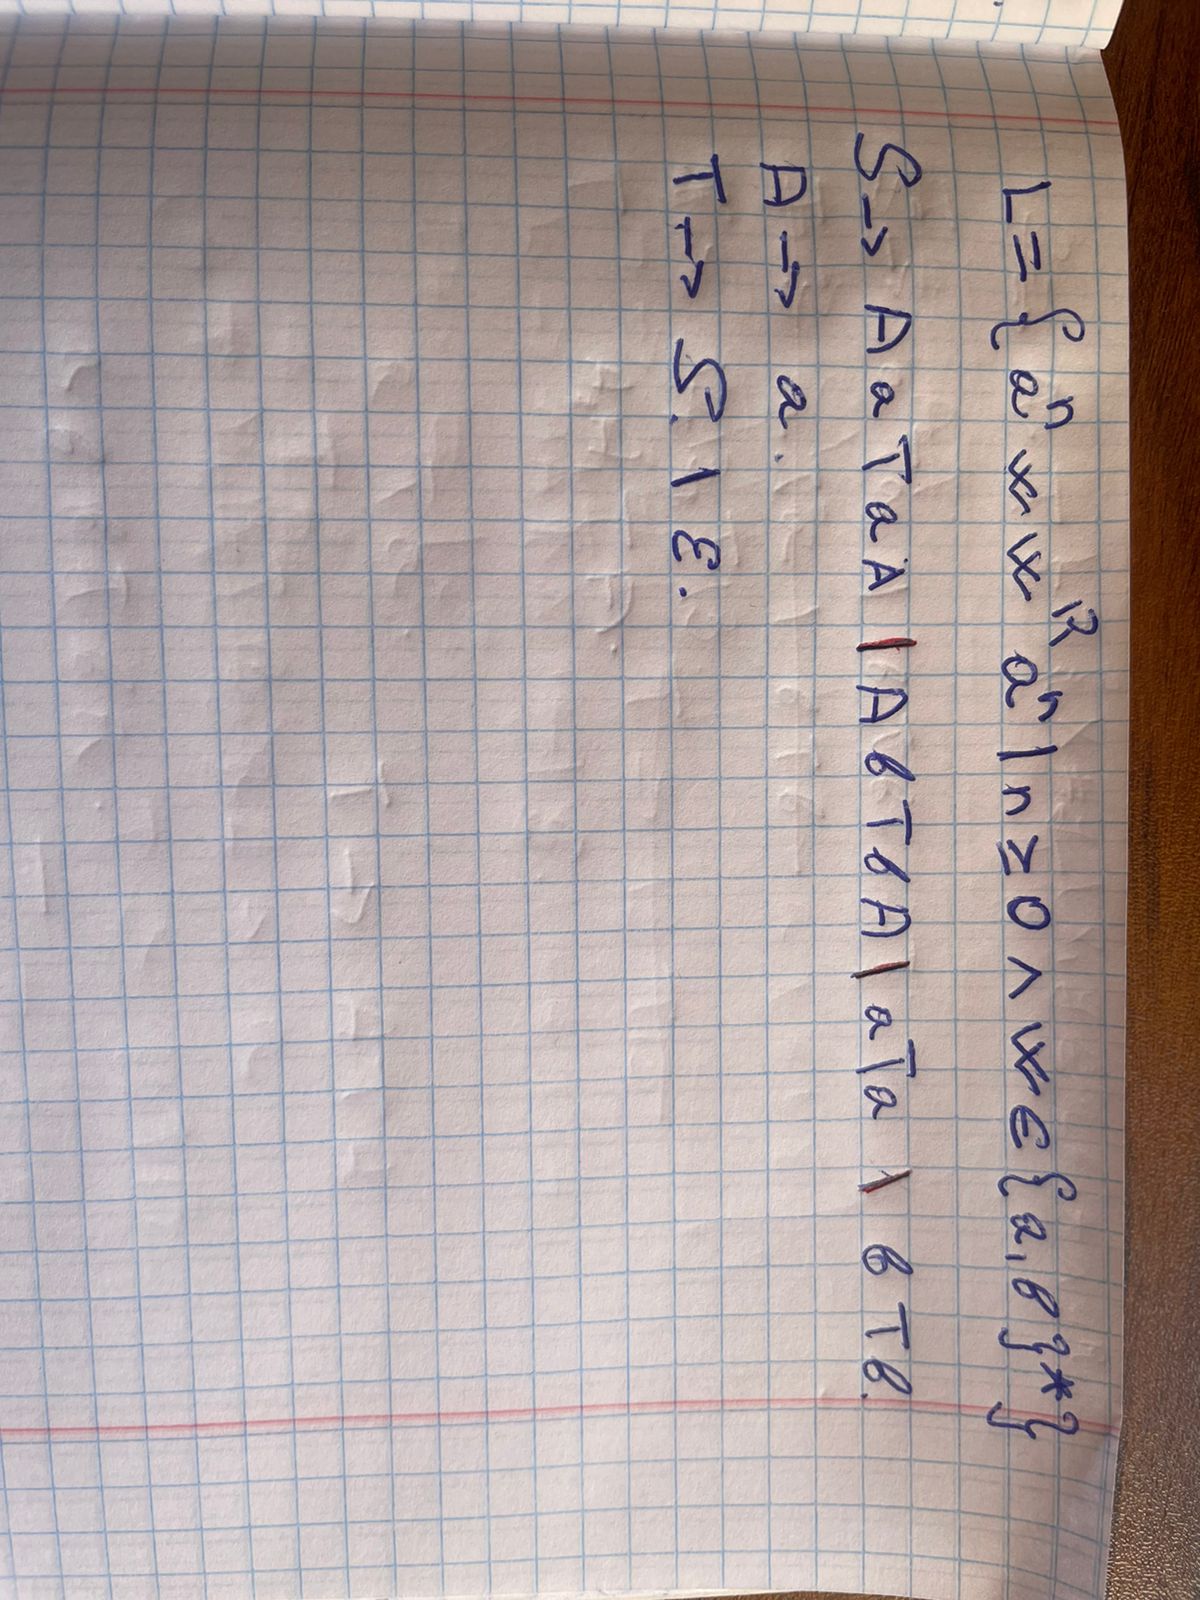 L = { aⁿ w wᴿ aⁿ | n ≥ 0 ∧ w ∈ {a, b}* }
S → A a T a A | A b T b A | a T a | b T b.
A → a.
T → S. | ε.